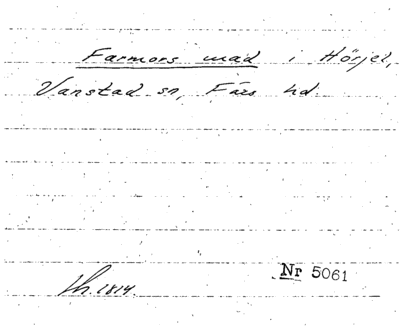 Farmors mad i Hörjel,
Vanstad sn, Färs hd.
Nr 5061
th. 1814.